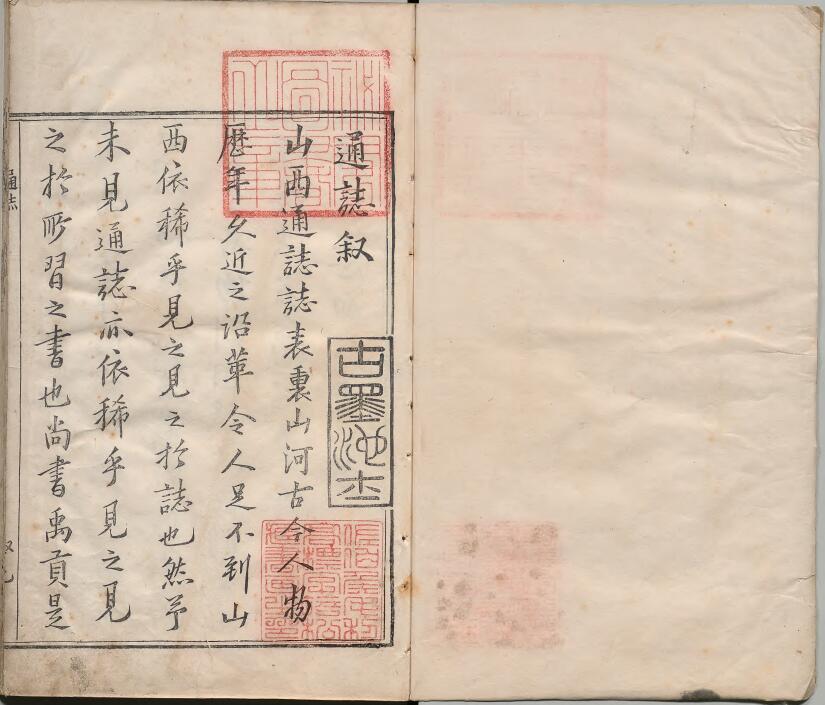 通誌叙
古墨池
山西通誌誌表裏山河古今人物
歷年久近之沿革令人足不到山
西依稀乎見之見之於誌也然予
未見通誌亦依稀乎見之見
之於所習之書也尚書禹貢是
通誌